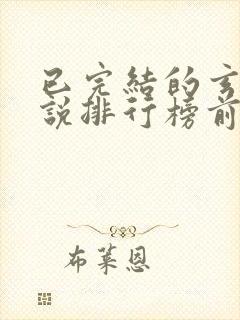 已完結的玄
說排行榜前
布萊恩